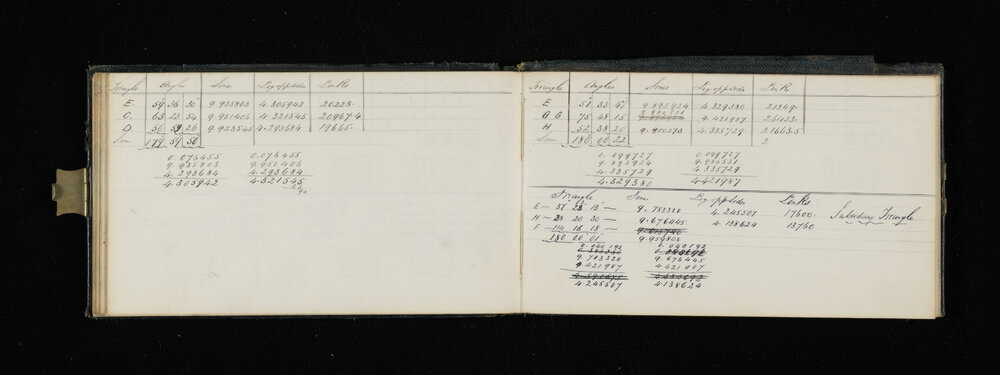 Triangle Angle Sines Log opp sides Links
E. 59 36 30 9.935803 4.305942 20228.
C. 63 23 54 9.951406 4.321545 20967.4
D 56 59 26 9.923545 4.293684 19665.
Sum 179 59 50
0.076455 0.076455
9.935803 9.951406
4.293684 4.293684
4.305942 4.321545
Triangle Angles Sines Log opp sides Links
E 51 33 47 9.893924 4.329380 21349.
G 75 48 15 4.421987 26423.
H 52 38 20 9.900273 4.335729 21663.5
Sum 180 00 22
0.099727 0.099727
9.893924 9.986531
4.335729 4.335729
4.329380 4.421987
Triangle Sines Log opp sides Links
E — 37 23 13 — 9.783328 4.245507 17600. Subsidiary Triangle
H — 28 20 30 — 9.676445 4.138624 13760
F — 114 16 18 — 9.959808
180 00 01
0.040192 0.040192
9.783328 9.676445
4.421987 4.421987
4.245507 4.138624